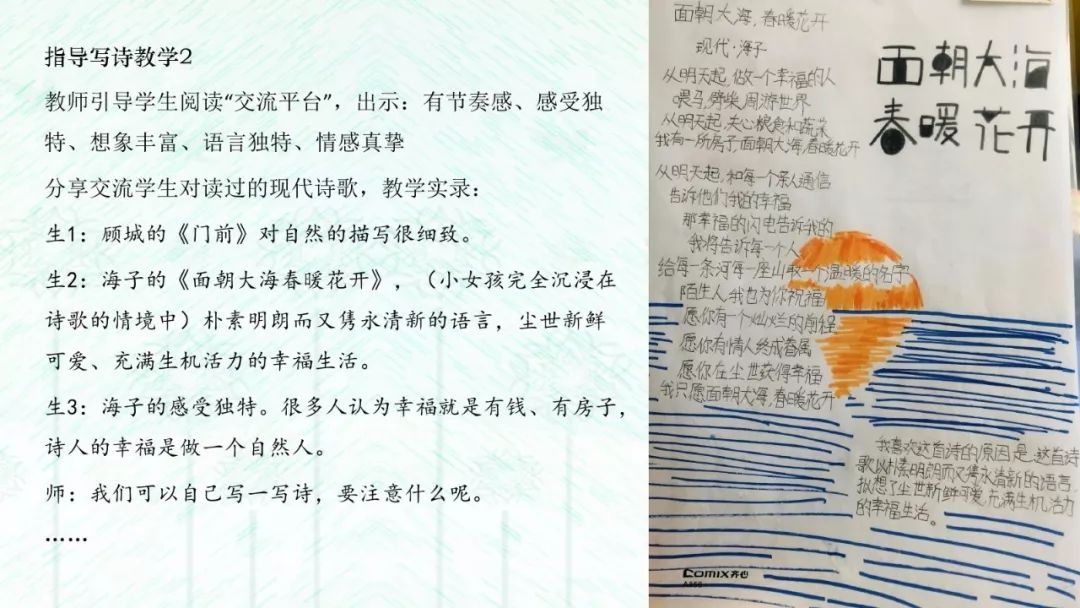 指导写诗教学2
教师引导学生阅读“交流平台”，出示：有节奏感、感受独
特、想象丰富、语言独特、情感真挚
分享交流学生对读过的现代诗歌，教学实录：
生1：顾城的《门前》对自然的描写很细致。
生2：海子的《面朝大海春暖花开》，（小女孩完全沉浸在
诗歌的情境中）朴素明朗而又隽永清新的语言，尘世新鲜
可爱、充满生机活力的幸福生活。
生3：海子的感受独特。很多人认为幸福就是有钱、有房子，
诗人的幸福是做一个自然人。
师：我们可以自己写一写诗，要注意什么呢。
……
面朝大海，春暖花开
现代·海子
从明天起，做一个幸福的人
喂马，劈柴，周游世界
从明天起，关心粮食和蔬菜
我有一所房子，面朝大海，春暖花开
从明天起，和每一个亲人通信
告诉他们我的幸福
那幸福的闪电告诉我的
我将告诉每一个人
给每一条河每一座山取一个温暖的名字
陌生人，我也为你祝福
愿你有一个灿烂的前程
愿你有情人终成眷属
愿你在尘世获得幸福
我只愿面朝大海，春暖花开
面朝大海
春暖花开
我喜欢这首诗的原因是，这首诗
歌以朴素明朗而又隽永清新的语言，
拟想了尘世新鲜可爱，充满生机活力
的幸福生活。
COMIX齐心